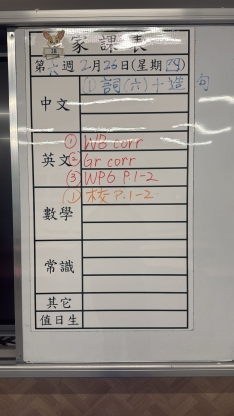 家課表
第六週2月26日(星期四)
中文 ①詞(六)+造句
英文 ①WB corr
②Gr corr
③WPG P.1-2
數學 ①校P.1-2
常識
其它
值日生